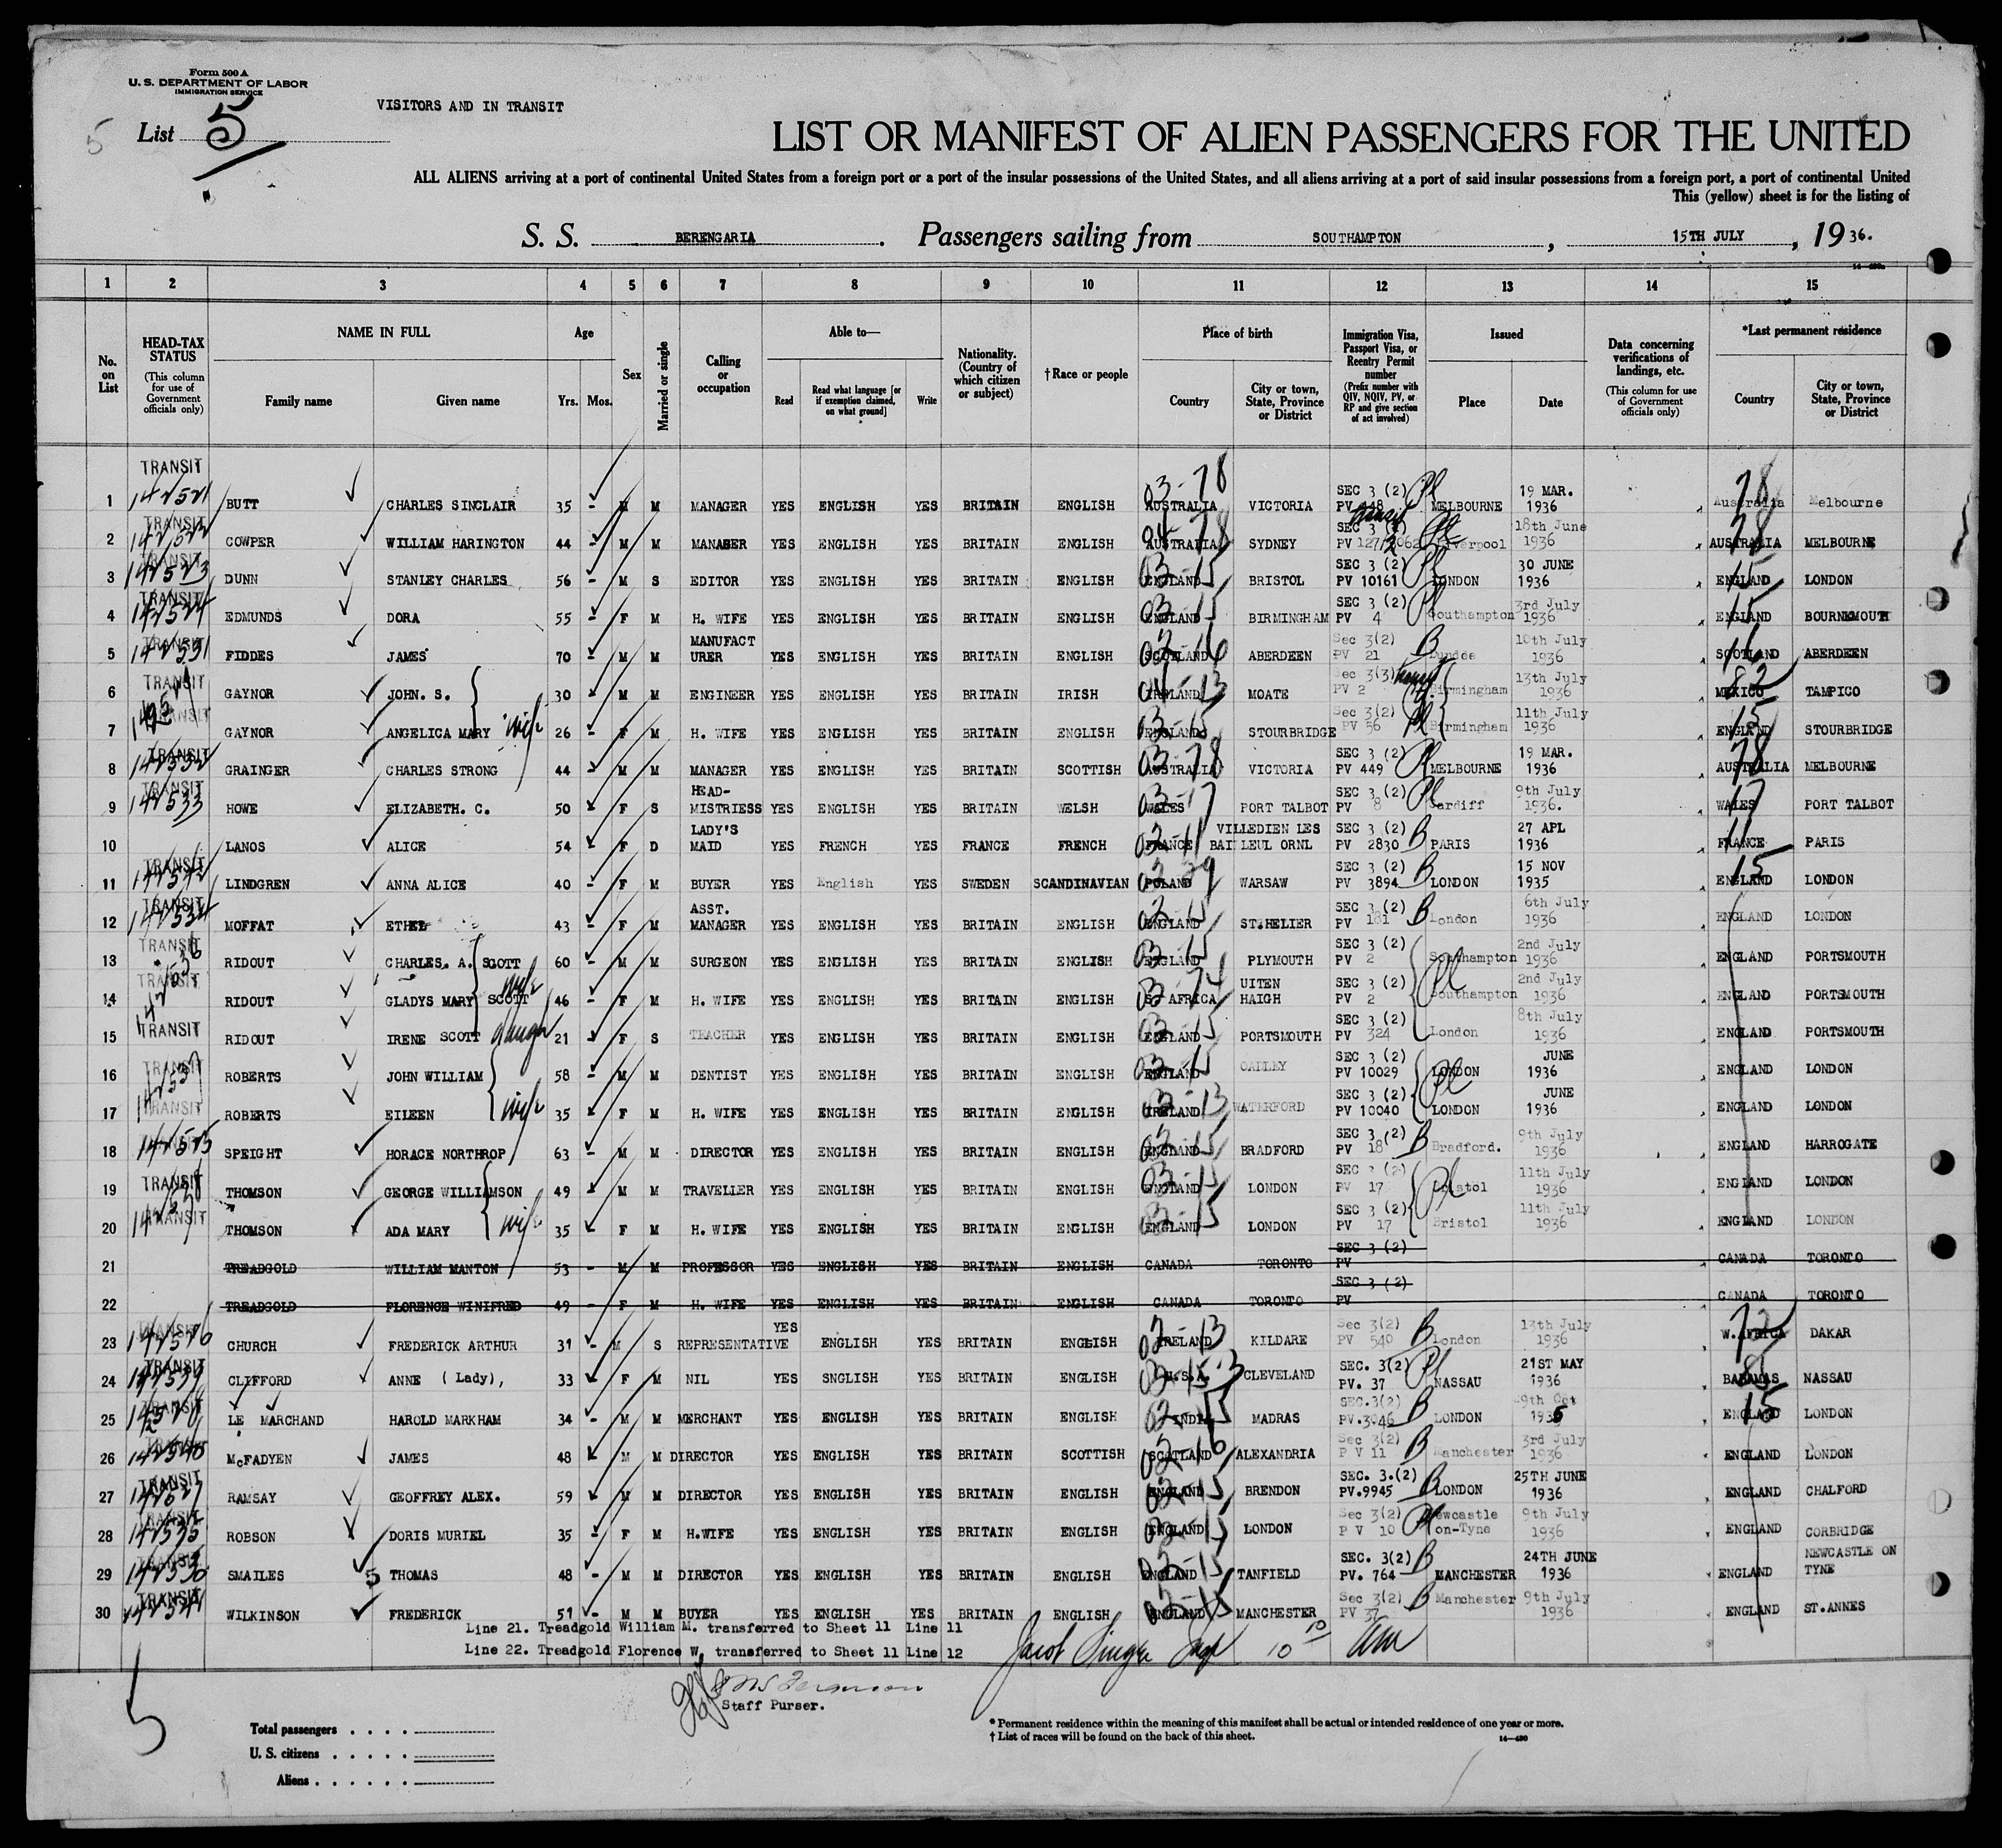 Form 500 A
U. S. DEPARTMENT OF LABOR
IMMIGRATION SERVICE
VISITORS AND IN TRANSIT
5 List 5
LIST OR MANIFEST OF ALIEN PASSENGERS FOR THE UNITED
ALL ALIENS arriving at a port of continental United States from a foreign port or a port of the insular possessions of the United States, and all aliens arriving at a port of said insular possessions from a foreign port, a port of continental United
This (yellow) sheet is for the listing of
S. S. BERENGARIA. Passengers sailing from SOUTHAMPTON, 15TH JULY, 1936.
1 2 3 4 5 6 7 8 9 10 11 12 13 14 15
No. on List
HEAD-TAX STATUS (This column for use of Government officials only)
NAME IN FULL Family name Given name
Age Yrs. Mos.
Sex
Married or single
Calling or occupation
Able to— Read Read what language [or if exemption claimed, on what ground] Write
Nationality. (Country of which citizen or subject)
†Race or people
Place of birth Country City or town, State, Province or District
Immigration Visa, Passport Visa, or Reentry Permit number (Prefix number with QIV, NQIV, PV, or RP and give section of act involved)
Issued Place Date
Data concerning verifications of landings, etc. (This column for use of Government officials only)
*Last permanent residence Country City or town, State, Province or District
1 TRANSIT BUTT CHARLES SINCLAIR 35 - M M MANAGER YES ENGLISH YES BRITAIN ENGLISH AUSTRALIA VICTORIA SEC 3 (2) PV 448 MELBOURNE 19 MAR. 1936 Australia Melbourne
2 TRANSIT COWPER WILLIAM HARINGTON 44 - M M MANAGER YES ENGLISH YES BRITAIN ENGLISH AUSTRALIA SYDNEY SEC 3 PV Liverpool 18th June 1936 AUSTRALIA MELBOURNE
3 TRANSIT DUNN STANLEY CHARLES 56 - M S EDITOR YES ENGLISH YES BRITAIN ENGLISH ENGLAND BRISTOL SEC 3 (2) PV 10161 LONDON 30 JUNE 1936 ENGLAND LONDON
4 TRANSIT EDMUNDS DORA 55 - F M H. WIFE YES ENGLISH YES BRITAIN ENGLISH ENGLAND BIRMINGHAM SEC 3 (2) PV 4 Southampton 3rd July 1936 ENGLAND BOURNEMOUTH
5 TRANSIT FIDDES JAMES 70 - M M MANUFACTURER YES ENGLISH YES BRITAIN ENGLISH SCOTLAND ABERDEEN Sec 3(2) PV 21 Dundee 10th July 1936 SCOTLAND ABERDEEN
6 TRANSIT GAYNOR JOHN. S. 30 M M ENGINEER YES ENGLISH YES BRITAIN IRISH IRELAND MOATE Sec 3(3) PV 2 Birmingham 13th July 1936 MEXICO TAMPICO
7 TRANSIT GAYNOR ANGELICA MARY wife 26 - F M H. WIFE YES ENGLISH YES BRITAIN ENGLISH ENGLAND STOURBRIDGE Sec 3(2) PV 56 Birmingham 11th July 1936 ENGLAND STOURBRIDGE
8 TRANSIT GRAINGER CHARLES STRONG 44 M M MANAGER YES ENGLISH YES BRITAIN SCOTTISH AUSTRALIA VICTORIA SEC 3 (2) PV 449 MELBOURNE 19 MAR. 1936 AUSTRALIA MELBOURNE
9 TRANSIT HOWE ELIZABETH. C. 50 F S HEAD-MISTRIESS YES ENGLISH YES BRITAIN WELSH WALES PORT TALBOT SEC 3 (2) PV 8 Cardiff 9th July 1936. WALES PORT TALBOT
10 LANOS ALICE 54 F D LADY'S MAID YES FRENCH YES FRANCE FRENCH FRANCE VILLEDIEN LES BAILLEUL ORNL SEC 3 (2) PV 2830 PARIS 27 APL 1936 FRANCE PARIS
11 TRANSIT LINDGREN ANNA ALICE 40 - F M BUYER YES English YES SWEDEN SCANDINAVIAN POLAND WARSAW SEC 3 (2) PV 3894 LONDON 15 NOV 1935 ENGLAND LONDON
12 TRANSIT MOFFAT ETHEL 43 - F M ASST. MANAGER YES ENGLISH YES BRITAIN ENGLISH ENGLAND ST.HELIER SEC 3 (2) PV 181 London 6th July 1936 ENGLAND LONDON
13 TRANSIT RIDOUT CHARLES. A. SCOTT 60 - M M SURGEON YES ENGLISH YES BRITAIN ENGLISH ENGLAND PLYMOUTH SEC 3 (2) PV 2 Southampton 2nd July 1936 ENGLAND PORTSMOUTH
14 TRANSIT RIDOUT GLADYS MARY SCOTT wife 46 - F M H. WIFE YES ENGLISH YES BRITAIN ENGLISH S. AFRICA UITENHAIGH SEC 3 (2) PV 2 Southampton 2nd July 1936 ENGLAND PORTSMOUTH
15 TRANSIT RIDOUT IRENE SCOTT 21 F S TEACHER YES ENGLISH YES BRITAIN ENGLISH ENGLAND PORTSMOUTH SEC 3 (2) PV 324 London 8th July 1936 ENGLAND PORTSMOUTH
16 TRANSIT ROBERTS JOHN WILLIAM 58 - M M DENTIST YES ENGLISH YES BRITAIN ENGLISH ENGLAND OAZLEY SEC 3 (2) PV 10029 LONDON JUNE 1936 ENGLAND LONDON
17 TRANSIT ROBERTS EILEEN wife 35 F M H. WIFE YES ENGLISH YES BRITAIN ENGLISH IRELAND WATERFORD SEC 3 (2) PV 10040 LONDON JUNE 1936 ENGLAND LONDON
18 SPEIGHT HORACE NORTHROP 63 - M M DIRECTOR YES ENGLISH YES BRITAIN ENGLISH ENGLAND BRADFORD SEC 3 (2) PV 18 Bradford. 9th July 1936 ENGLAND HARROGATE
19 TRANSIT THOMSON GEORGE WILLIAMSON 49 M M TRAVELLER YES ENGLISH YES BRITAIN ENGLISH ENGLAND LONDON SEC 3 (2) PV 17 Bristol 11th July 1936 ENGLAND LONDON
20 TRANSIT THOMSON ADA MARY wife 35 F M H. WIFE YES ENGLISH YES BRITAIN ENGLISH ENGLAND LONDON SEC 3 (2) PV 17 Bristol 11th July 1936 ENGLAND LONDON
21 TREADGOLD WILLIAM MANTON 53 - M M PROFESSOR YES ENGLISH YES BRITAIN ENGLISH CANADA TORONTO SEC 3 (2) PV CANADA TORONTO
22 TREADGOLD FLORENCE WINIFRED 49 - F M H. WIFE YES ENGLISH YES BRITAIN ENGLISH CANADA TORONTO SEC 3 (2) PV CANADA TORONTO
23 TRANSIT CHURCH FREDERICK ARTHUR 31 - M S REPRESENTATIVE YES ENGLISH YES BRITAIN ENGLISH IRELAND KILDARE Sec 3(2) PV 540 London 13th July 1936 W. AFRICA DAKAR
24 TRANSIT CLIFFORD ANNE (Lady), 33 F M NIL YES SNGLISH YES BRITAIN ENGLISH U.S.A. CLEVELAND SEC. 3(2) PV. 37 NASSAU 21ST MAY 1936 BAHAMAS NASSAU
25 TRANSIT LE MARCHAND HAROLD MARKHAM 34 - M M MERCHANT YES ENGLISH YES BRITAIN ENGLISH INDIA MADRAS SEC.3(2) PV.3046 LONDON 9th Oct 1935 ENGLAND LONDON
26 TRANSIT McFADYEN JAMES 48 M M DIRECTOR YES ENGLISH YES BRITAIN SCOTTISH SCOTLAND ALEXANDRIA Sec 3(2) P V 11 Manchester 3rd July 1936 ENGLAND LONDON
27 TRANSIT RAMSAY GEOFFREY ALEX. 59 M M DIRECTOR YES ENGLISH YES BRITAIN ENGLISH ENGLAND BRENDON SEC. 3.(2) PV.9945 LONDON 25TH JUNE 1936 ENGLAND CHALFORD
28 TRANSIT ROBSON DORIS MURIEL 35 - F M H.WIFE YES ENGLISH YES BRITAIN ENGLISH ENGLAND LONDON Sec 3(2) P V 10 Newcastle on-Tyne 9th July 1936 ENGLAND CORBRIDGE
29 TRANSIT SMAILES THOMAS 48 - M M DIRECTOR YES ENGLISH YES BRITAIN ENGLISH ENGLAND TANFIELD SEC. 3(2) PV. 764 MANCHESTER 24TH JUNE 1936 ENGLAND NEWCASTLE ON TYNE
30 TRANSIT WILKINSON FREDERICK 51 - M M BUYER YES ENGLISH YES BRITAIN ENGLISH ENGLAND MANCHESTER Sec 3(2) PV 37 Manchester 9th July 1936 ENGLAND ST.ANNES
Line 21. Treadgold William M. transferred to Sheet 11 Line 11
Line 22. Treadgold Florence W. transferred to Sheet 11 Line 12
Staff Purser.
5
Total passengers
U. S. citizens
Aliens
* Permanent residence within the meaning of this manifest shall be actual or intended residence of one year or more.
† List of races will be found on the back of this sheet.
14—430